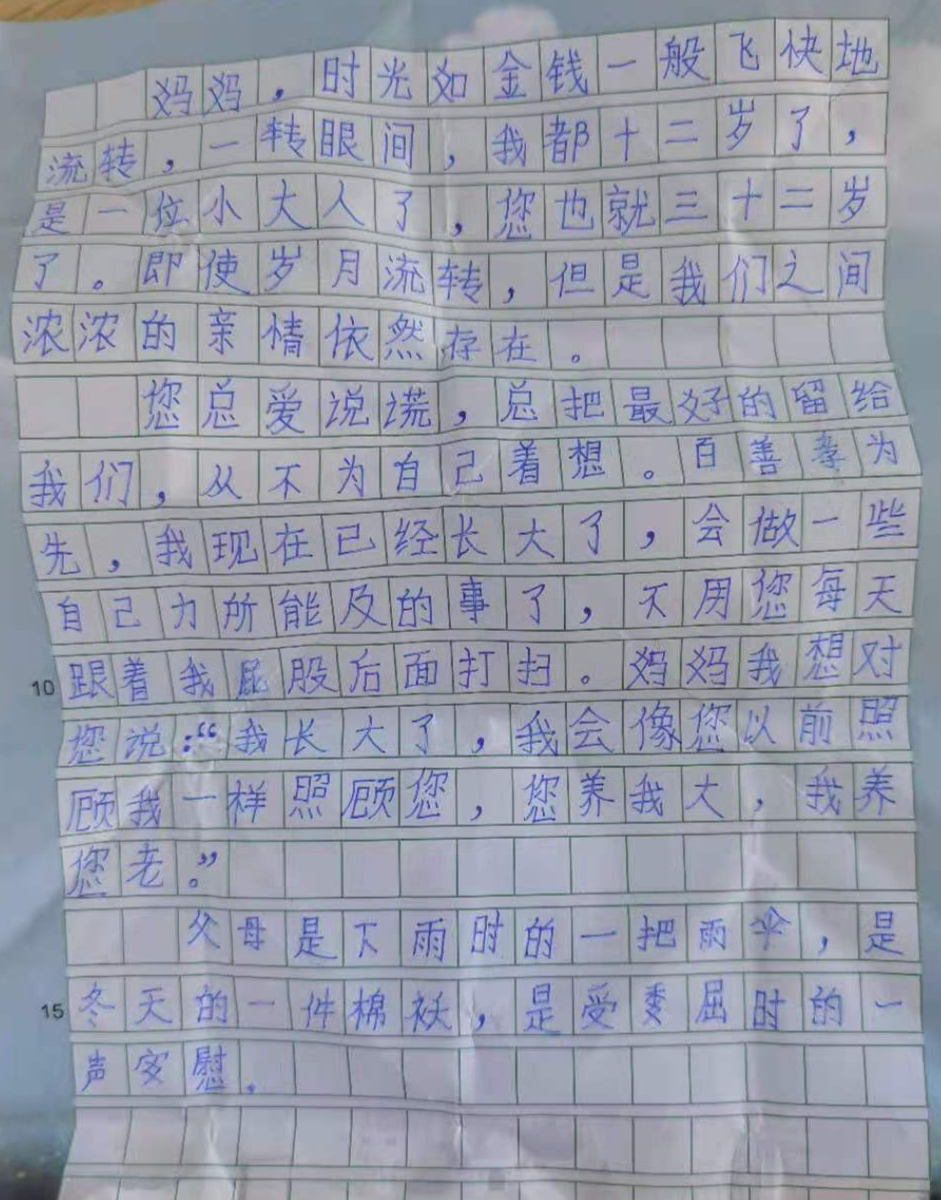 妈妈，时光如金钱一般飞快地
流转，一转眼间，我都十二岁了，
是一位小大人了，您也就三十二岁
了。即使岁月流转，但是我们之间
浓浓的亲情依然存在。
您总爱说谎，总把最好的留给
我们，从不为自己着想。百善孝为
先，我现在已经长大了，会做一些
自己力所能及的事了，不用您每天
10 跟着我屁股后面打扫。妈妈我想对
您说：“我长大了，我会像您以前照
顾我一样照顾您，您养我大，我养
您老。”
父母是下雨时的一把雨伞，是
15 冬天的一件棉袄，是受委屈时的一
声安慰.